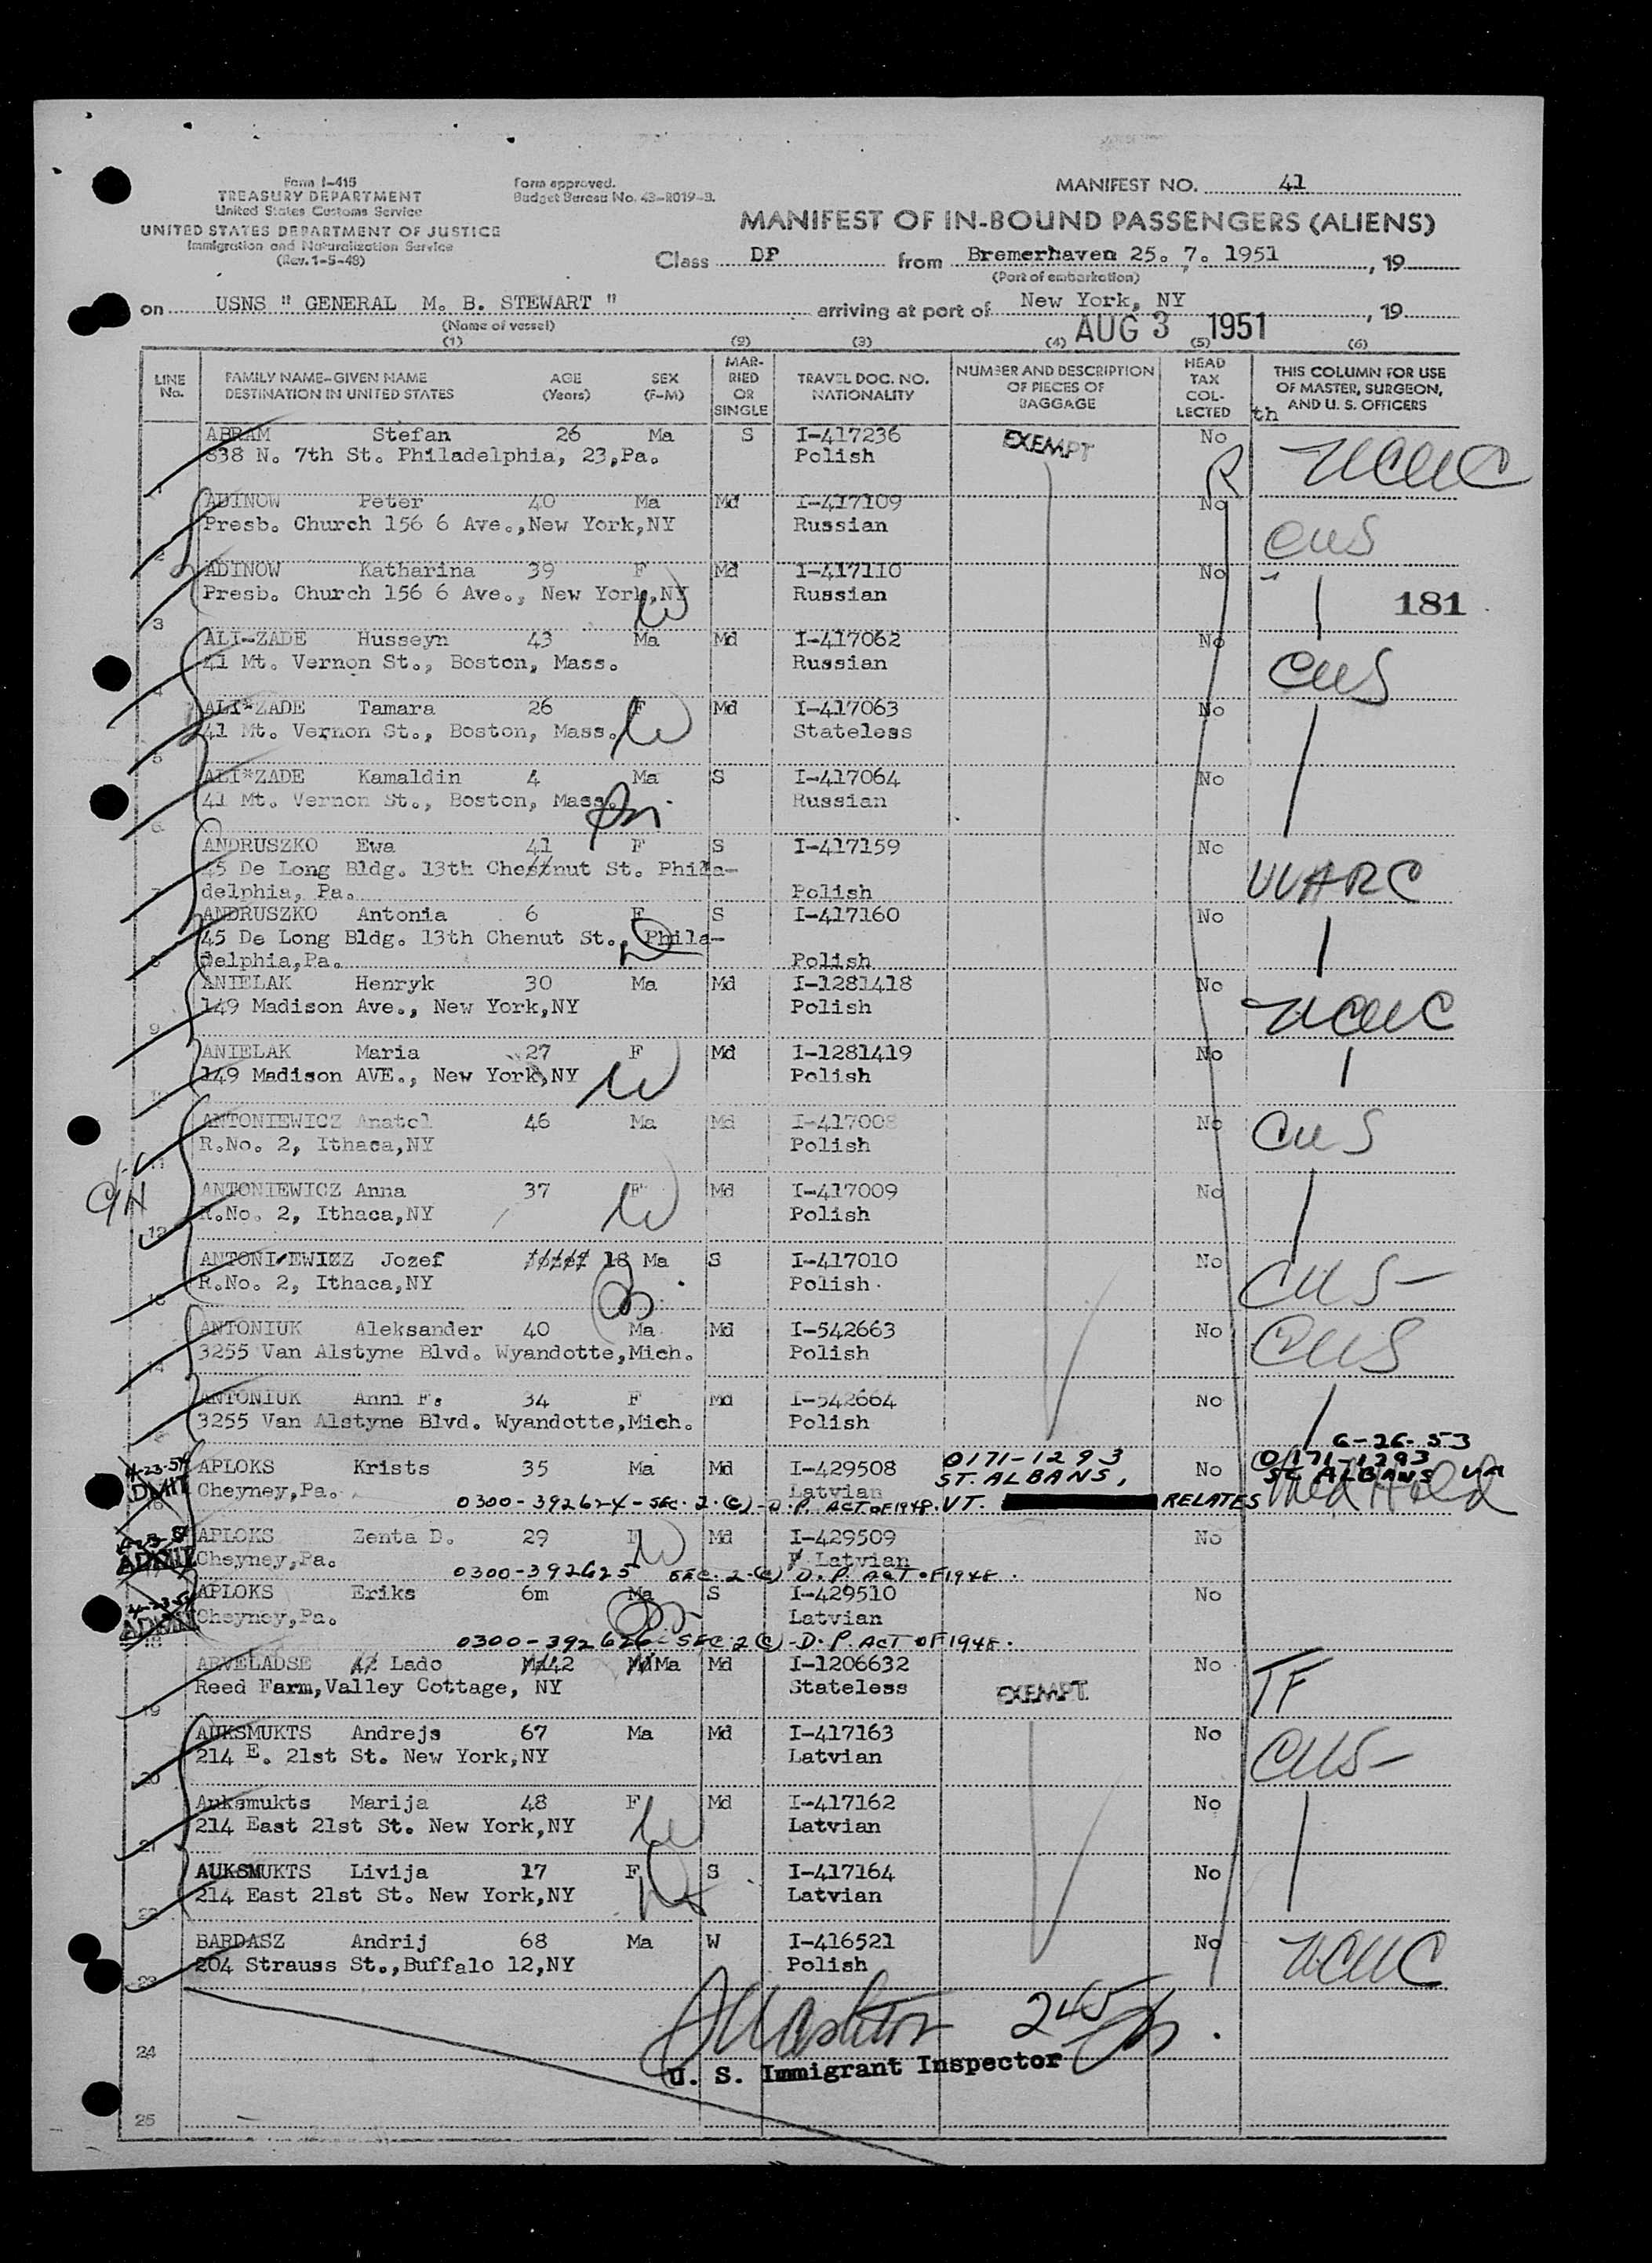 Form I-415
TREASURY DEPARTMENT
United States Customs Service
UNITED STATES DEPARTMENT OF JUSTICE
Immigration and Naturalization Service
(Rev. 1-5-48)
Form approved.
Budget Bureau No. 43-R019-3.
MANIFEST NO. 41
MANIFEST OF IN-BOUND PASSENGERS (ALIENS)
Class DP from Bremerhaven 25. 7. 1951, 19
(Port of embarkation)
on USNS " GENERAL M. B. STEWART " arriving at port of New York, NY, 19
(Name of vessel)
AUG 3 1951
(1) (2) (3) (4) (5) (6)
LINE No. FAMILY NAME-GIVEN NAME DESTINATION IN UNITED STATES AGE (Years) SEX (F-M) MARRIED OR SINGLE TRAVEL DOC. NO. NATIONALITY NUMBER AND DESCRIPTION OF PIECES OF BAGGAGE HEAD TAX COLLECTED THIS COLUMN FOR USE OF MASTER, SURGEON, AND U. S. OFFICERS
th
ABRAM Stefan 26 Ma S I-417236 EXEMPT No
838 N. 7th St. Philadelphia, 23,Pa. Polish
1
ADINOW Peter 40 Ma Md I-417109 No
Presb. Church 156 6 Ave.,New York,NY Russian
2
ADINOW Katharina 39 F Md I-417110 No
Presb. Church 156 6 Ave., New York,NY Russian 181
3
ALI-ZADE Husseyn 43 Ma Md I-417062 No
41 Mt. Vernon St., Boston, Mass. Russian
4
ALI*ZADE Tamara 26 F Md I-417063 No
41 Mt. Vernon St., Boston, Mass. Stateless
5
ALI*ZADE Kamaldin 4 Ma S I-417064 No
41 Mt. Vernon St., Boston, Mass. Russian
6
ANDRUSZKO Ewa 41 F S I-417159 No
45 De Long Bldg. 13th Chestnut St. Phila-
7 delphia, Pa. Polish
ANDRUSZKO Antonia 6 F S I-417160 No
45 De Long Bldg. 13th Chenut St., Phila-
8 delphia,Pa. Polish
ANIELAK Henryk 30 Ma Md I-1281418 No
149 Madison Ave., New York,NY Polish
9
ANIELAK Maria 27 F Md I-1281419 No
149 Madison AVE., New York,NY Polish
10
ANTONIEWICZ Anatol 46 Ma Md I-417008 No
R.No. 2, Ithaca,NY Polish
11
ANTONIEWICZ Anna 37 F Md I-417009 No
R.No. 2, Ithaca,NY Polish
12
ANTONI EWICZ Jozef 18 Ma S I-417010 No
R.No. 2, Ithaca,NY Polish
13
ANTONIUK Aleksander 40 Ma Md I-542663 No
3255 Van Alstyne Blvd. Wyandotte,Mich. Polish
14
ANTONIUK Anni F. 34 F Md I-542664 No
3255 Van Alstyne Blvd. Wyandotte,Mich. Polish
15
6-26-53
4-23-54 APLOKS Krists 35 Ma Md I-429508 0171-1293 No 0171-1293
ADMIT Cheyney,Pa. Latvian ST. ALBANS, ST. ALBANS
16 0300-392624-SEC. 2.(C)-D.P. ACT OF 1948. VT. RELATES
APLOKS Zenta D. 29 F Md I-429509 No
ADMIT Cheyney,Pa. Latvian
0300-392625 SEC. 2.(C) D.P. ACT OF 1948.
4-23-54 APLOKS Eriks 6m Ma S I-429510 No
ADMIT Cheyney,Pa. Latvian
18 0300-392626-SEC 2(C)-D.P. ACT OF 1948.
ARVELADSE Lado 42 Ma Md I-1206632 No TF
Reed Farm,Valley Cottage, NY Stateless EXEMPT.
19
AUKSMUKTS Andrejs 67 Ma Md I-417163 No
214 E. 21st St. New York,NY Latvian
20
Auksmukts Marija 48 F Md I-417162 No
214 East 21st St. New York,NY Latvian
21
AUKSMUKTS Livija 17 F S I-417164 No
214 East 21st St. New York,NY Latvian
22
BARDASZ Andrij 68 Ma W I-416521 No
204 Strauss St.,Buffalo 12,NY Polish
23
24
U. S. Immigrant Inspector
25